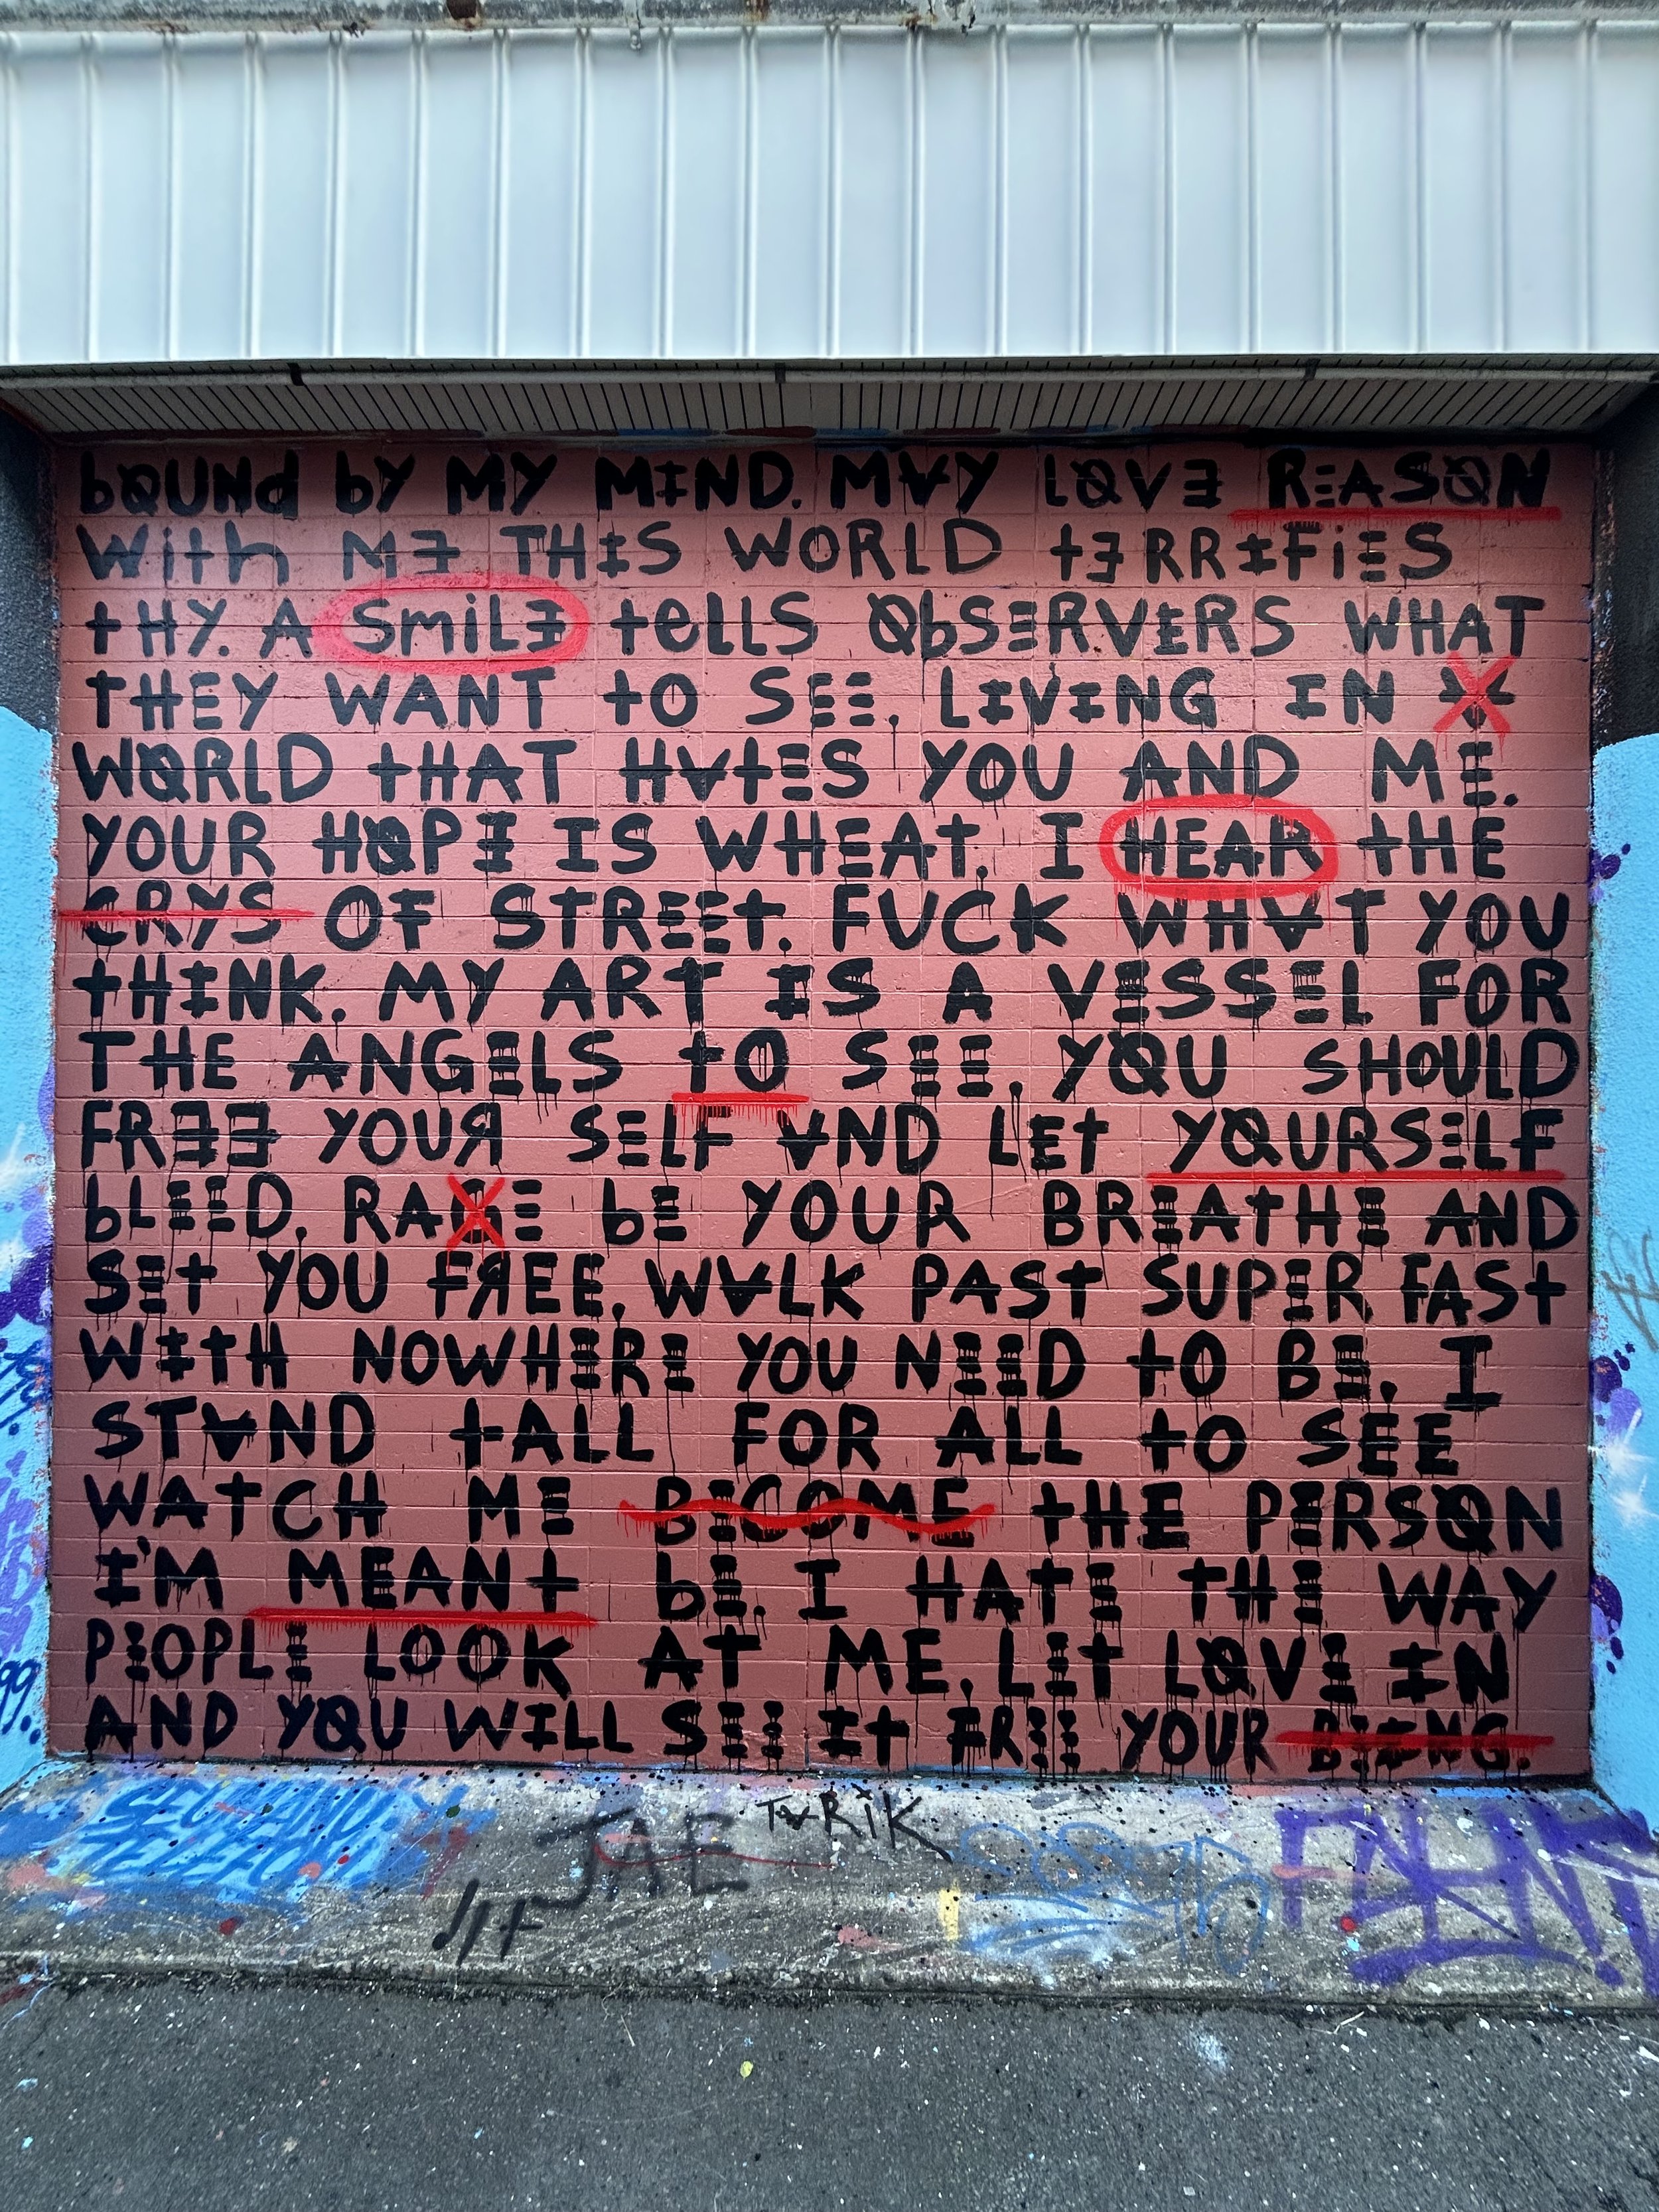 bOUNd bY MY MIND. MAY LOVE REASON
With ME THIS WORLD tERRIFiES
tHY. A SmiLE tellS ObSERVERS WHAT
THEY WANT tO SEE. LIVING IN A
WORLD tHAT HAtES YOU AND ME.
YOUR HOPE IS WHEAt. I HEAR tHE
CRYS OF STREEt. FUCK WHAT YOU
tHINK. MY ART IS A VESSEL FOR
THE ANGELS tO SEE. YOU SHOULD
FREE YOUR SELF AND LEt YOURSELF
bLEED. RAGE bE YOUR BREAtHE AND
SEt YOU FREE. WALK PASt SUPER FASt
WItH NOWHERE YOU NEED tO BE. I
STAND tALL FOR ALL tO SEE
WAtCH ME BECOME tHE PERSON
I'M MEANt bE. I HAtE THE WAY
PEOPLE LOOK AT ME. LEt LOVE IN
AND YOU WILL SEE It FREE YOUR BEING.
TARiK
JAE